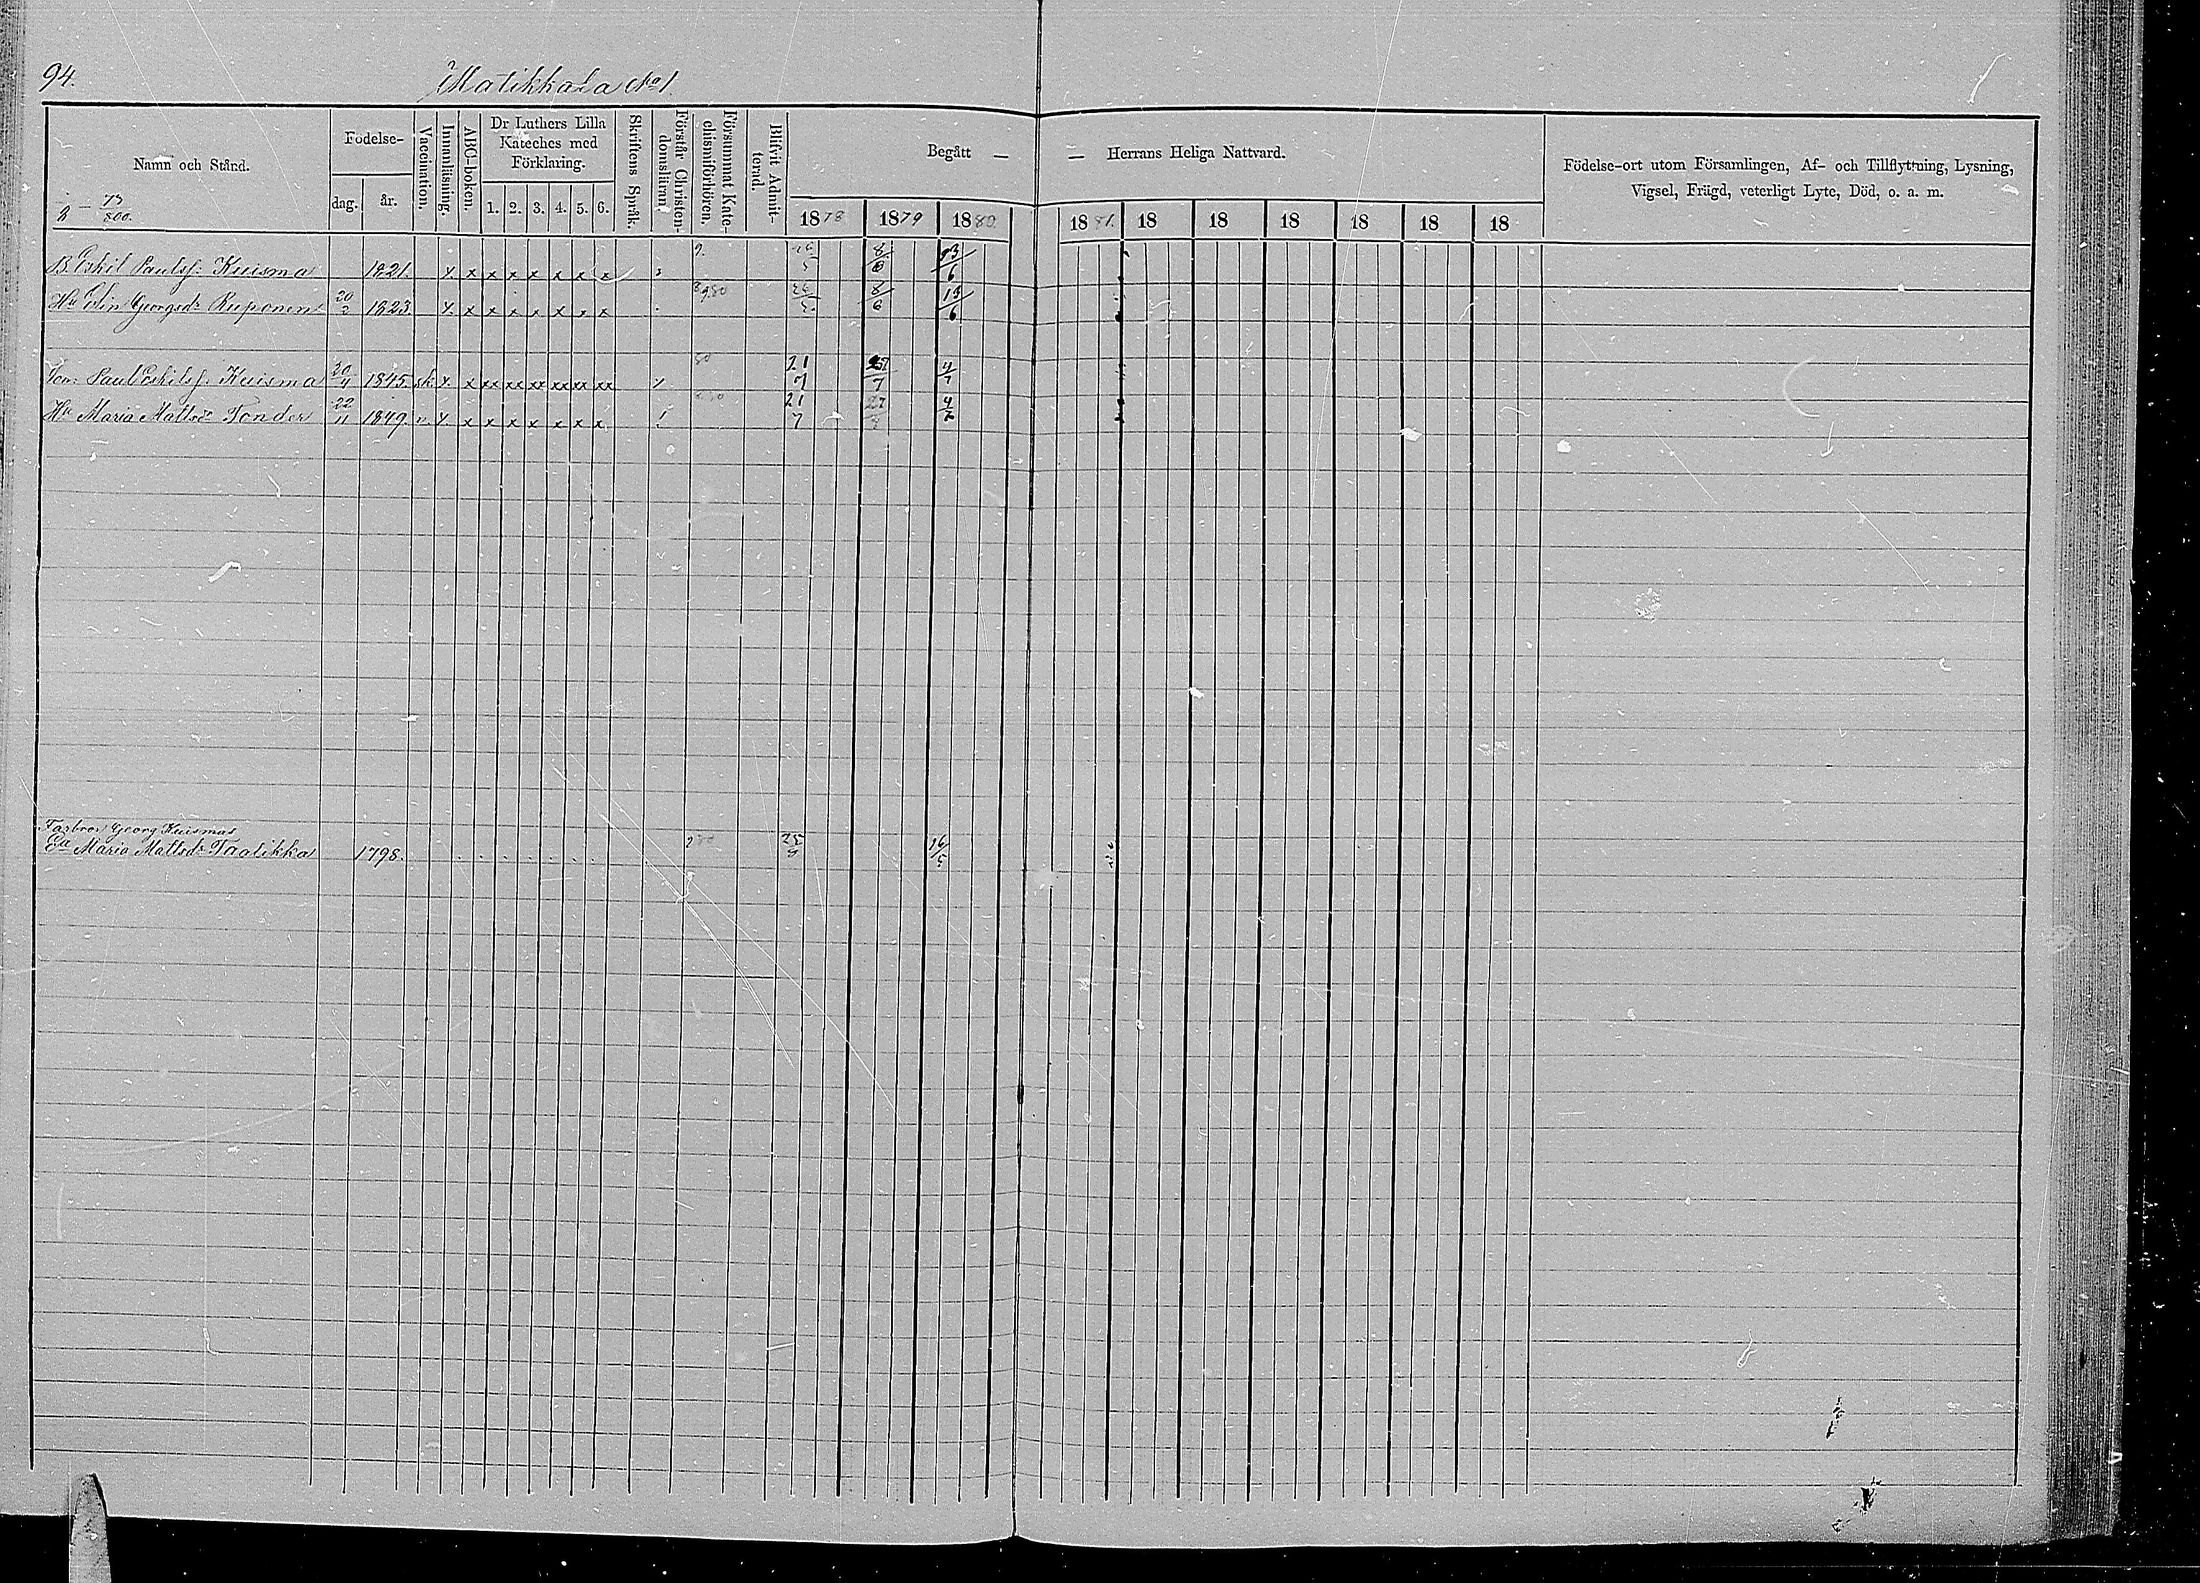 94.
Matikkala No 1
Namn och Stånd.
Födelse-
dag.
år.
Vaccination.
Innanläsning.
ABC-boken.
Dr Luthers Lilla
Kateches med
Förklaring.
1. 2. 3. 4. 5. 6.
Skriftens Språk.
Förstår Christen-
domsläran.
Försummat Kate-
chismiförhören.
Blifvit Admit-
terad.
Begått — — Herrans Heliga Nattvard.
1878 1879 1880. 1881. 18 18 18 18 18 18
Födelse-ort utom Församlingen, Af- och Tillflyttning, Lysning,
Vigsel, Frägd, veterligt Lyte, Död, o. a. m.
73/800.
B. Eskil Paulss. Kuisma 1821. x x x x x x x x 9. 8/6 13/6
Hu Elin Georgsdr Ruponen 20/2 1823. x x x x x x x x 8/6 13/6
Son: Paul Eskilss. Kuisma 20/4 1845. sk. x x xx xx xx xx xx xx 80 21/7 4/7
Hu Maria Mattsdr Tonder 22/11 1849. v. x x x x x x x x 21/7
Farbror Georg Kuismas
Ea Maria Mattsdr Taatikka 1798. 16/5